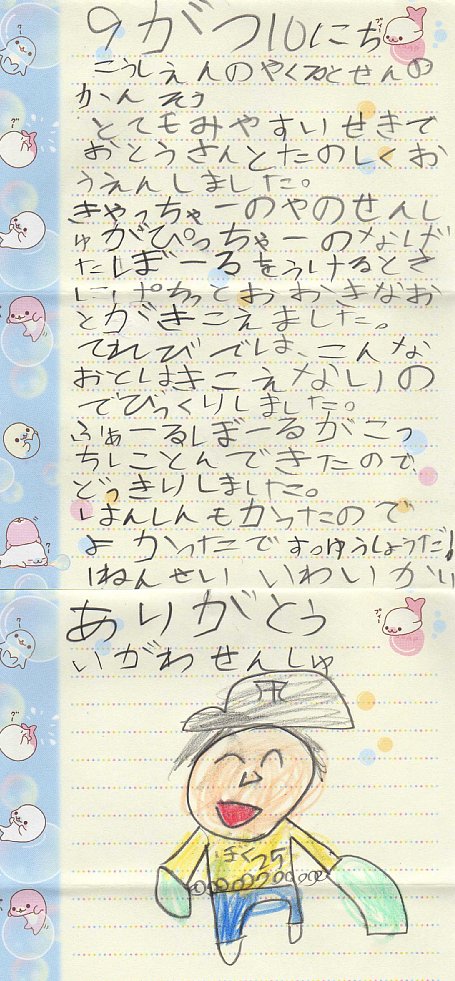 9がつ10にち
こうしえんのやくるとせんの
かんそう
とてもみやすいせきで
おとうさんとたのしくお
うえんしました。
きゃっちゃーのやのせんし
ゅがぴっちゃーのなげ
たぼーるをうけるとき
にぱぁっとおおきなお
とがきこえました。
てれびでは、こんな
おとはきこえないの
でびっくりしました。
ふぁーるぼーるがこっ
ちにとんできたので
どっきりしました。
はんしんもかったので
よかったです ゆうしょうだ!
1ねんせい いわいかり
ありがとう
いがわせんしゅ
ぼく